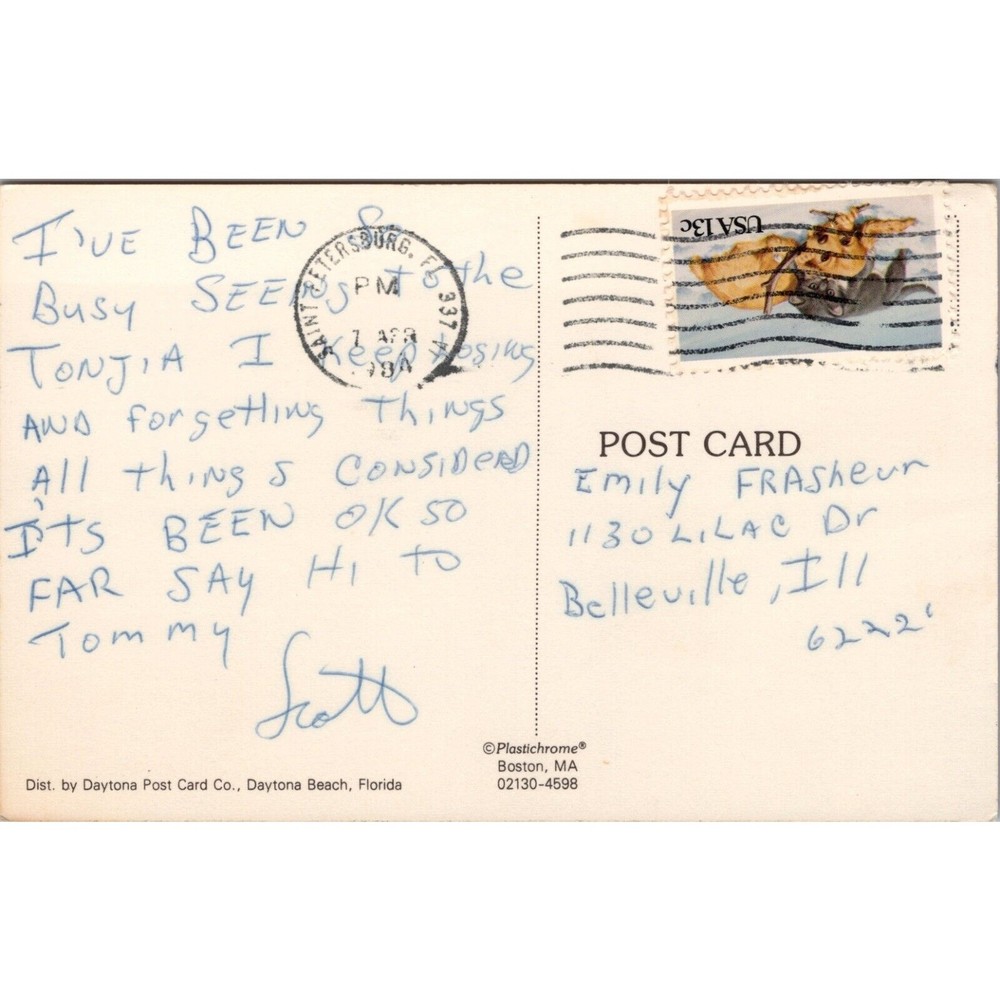 I'VE BEEN So
Busy SEEing to the
TONJIA I Keep Losing
AND forgetting Things
All things CONSIDERED
It's BEEN OK SO
FAR SAY Hi To
Tommy
Scott
SAINT PETERSBURG, FL 337
PM
7 APR
USA 13c
POST CARD
Emily FRASheur
1130 LiLAC Dr
Belleville, Ill
62221
©Plastichrome®
Boston, MA
02130-4598
Dist. by Daytona Post Card Co., Daytona Beach, Florida